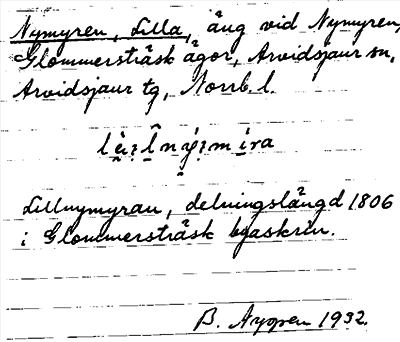 Nymyren, Lilla, äng vid Nymyren,
Glommersträsk ägor, Arvidsjaur sn,
Arvidsjaur tg, Norrb. l.
Lillnymyran, delningslängd 1806
i Glommersträsk byaskrin.
B. 1932.